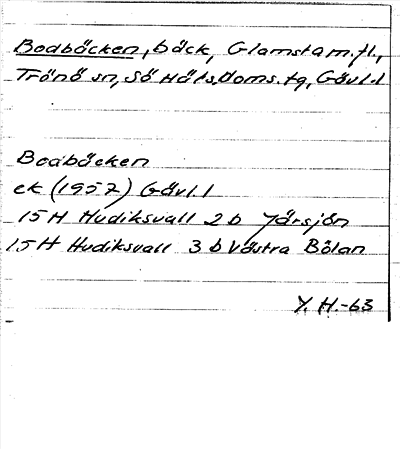 Bodbäcken, bäck, Glamsta m.fl.,
Trönö sn, Sö Häls. doms. tg, Gävl. l
Bodbäcken
ek (1957) Gävl. l
15 H Hudiksvall 2 b Järsjön
15 H Hudiksvall 3 b Västra Bölan
Y. H.-63